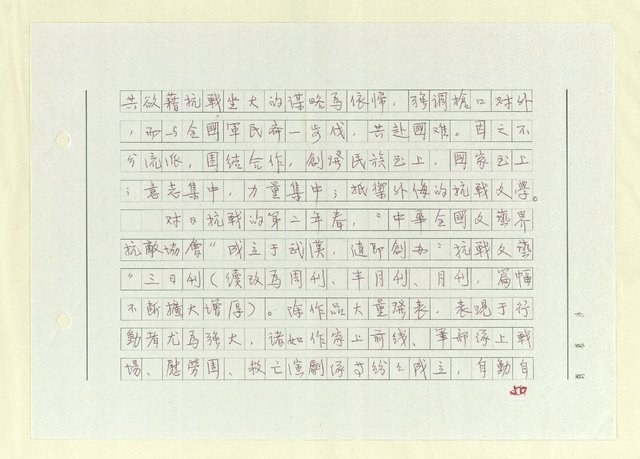 共欲藉抗戰坐大的謀略為依歸，強調槍口対外
，而与全國軍民齊一步伐，共赴國難。因之不
分流派，團结合作，創導民族至上，國家至上
；意志集中，力量集中；抵禦外侮的抗戰文學。
対日抗戰的第二年春，“中華全國文藝界
抗敵協會”成立于武漢，隨即創办“抗戰文藝
”三日刊（續改為周刊、半月刊、月刊，篇幅
不斷擴大增厚）。除作品大量發表，表現于行
動者尤為強大，諸如作家上前线、筆部隊上戰
場、慰勞團、救亡演劇隊等紛紛成立，自動自